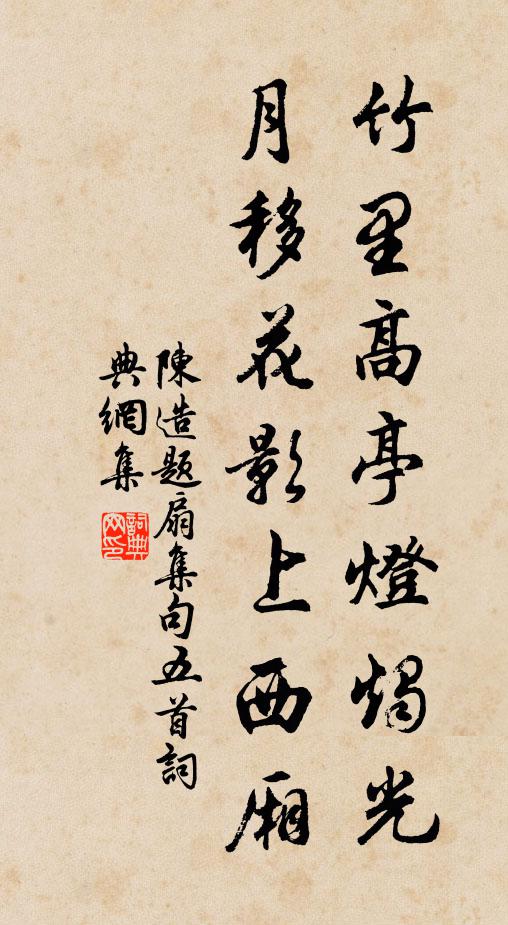 竹里高亭燈燭光
月移花影上西廂
陳造題扇集句五首詞
典網集
詞典網印